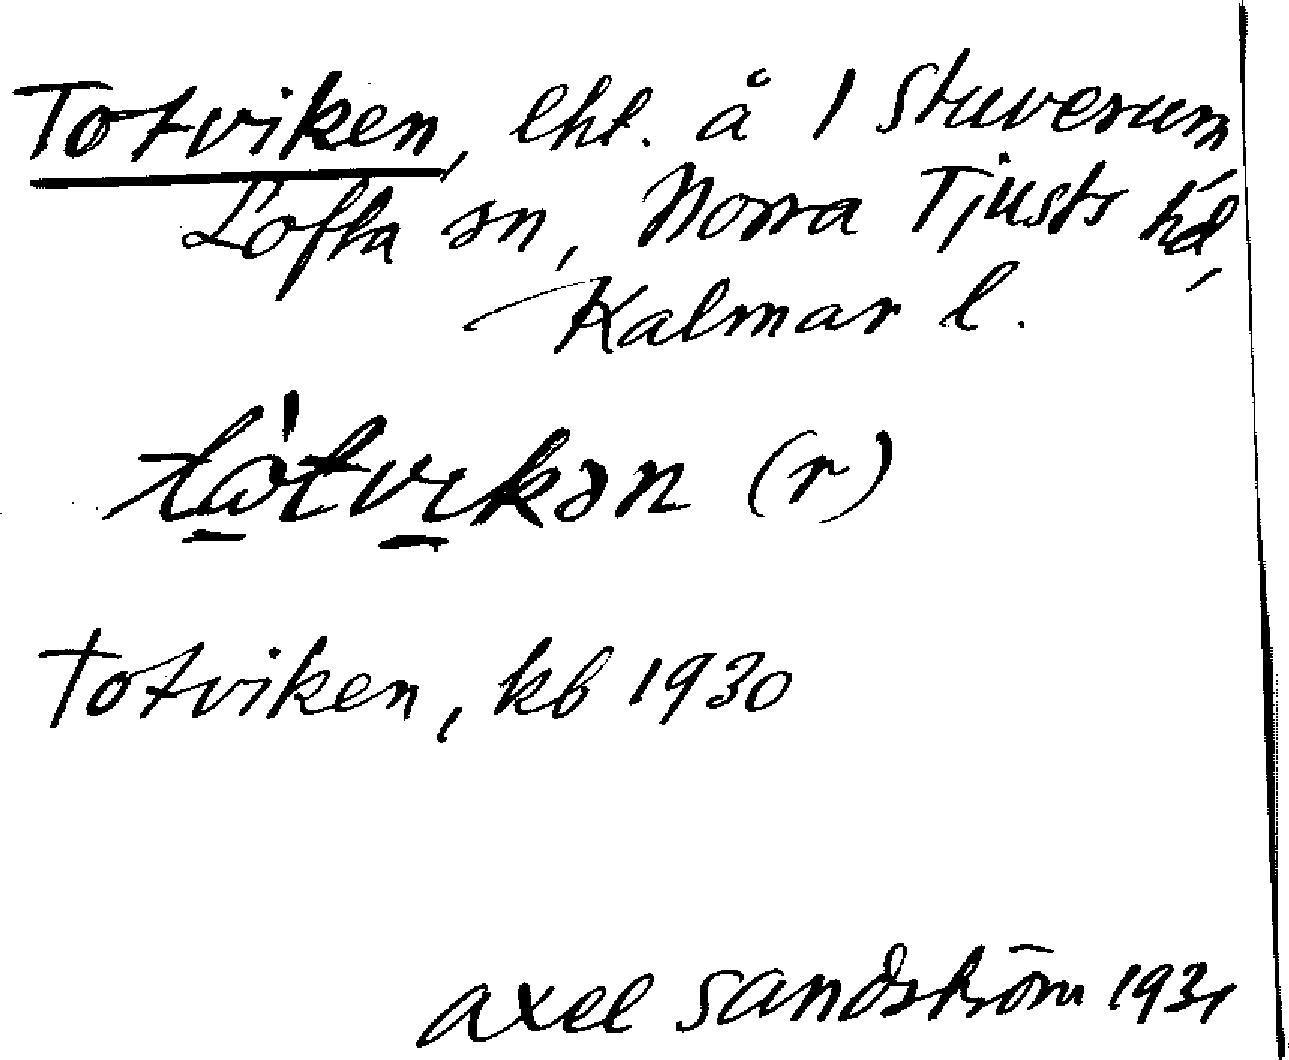 Totviken, lht. å 1 Stuverum
Lofta sn, Norra Tjusts hd,
Kalmar l.
tå̠̀tvi̠kən (r)
Totviken, kb 1930
Axel Sandström 1931